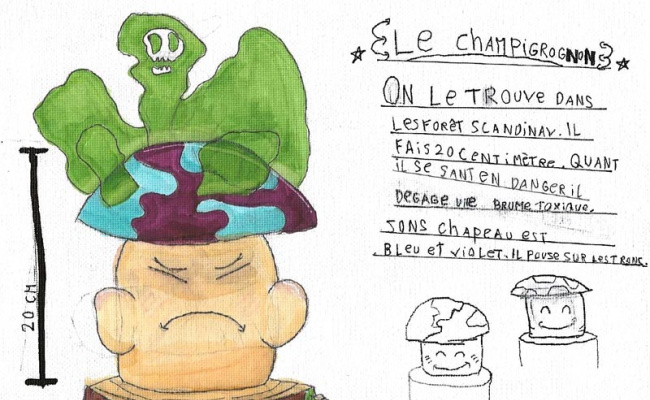 Le CHAMPIGROGNON
ON Le TROUVE DANS
LES FORÊT SCANDINAV. IL
FAIS 20 CENTIMÈTRE. QUANT
IL SE SANT EN DANGER IL
DEGAGE UNE BRUME TOXIQUE.
SONS CHAPEAU EST
BLEU et VIOLET. IL POUSE SUR LES TRONS.
20 CM